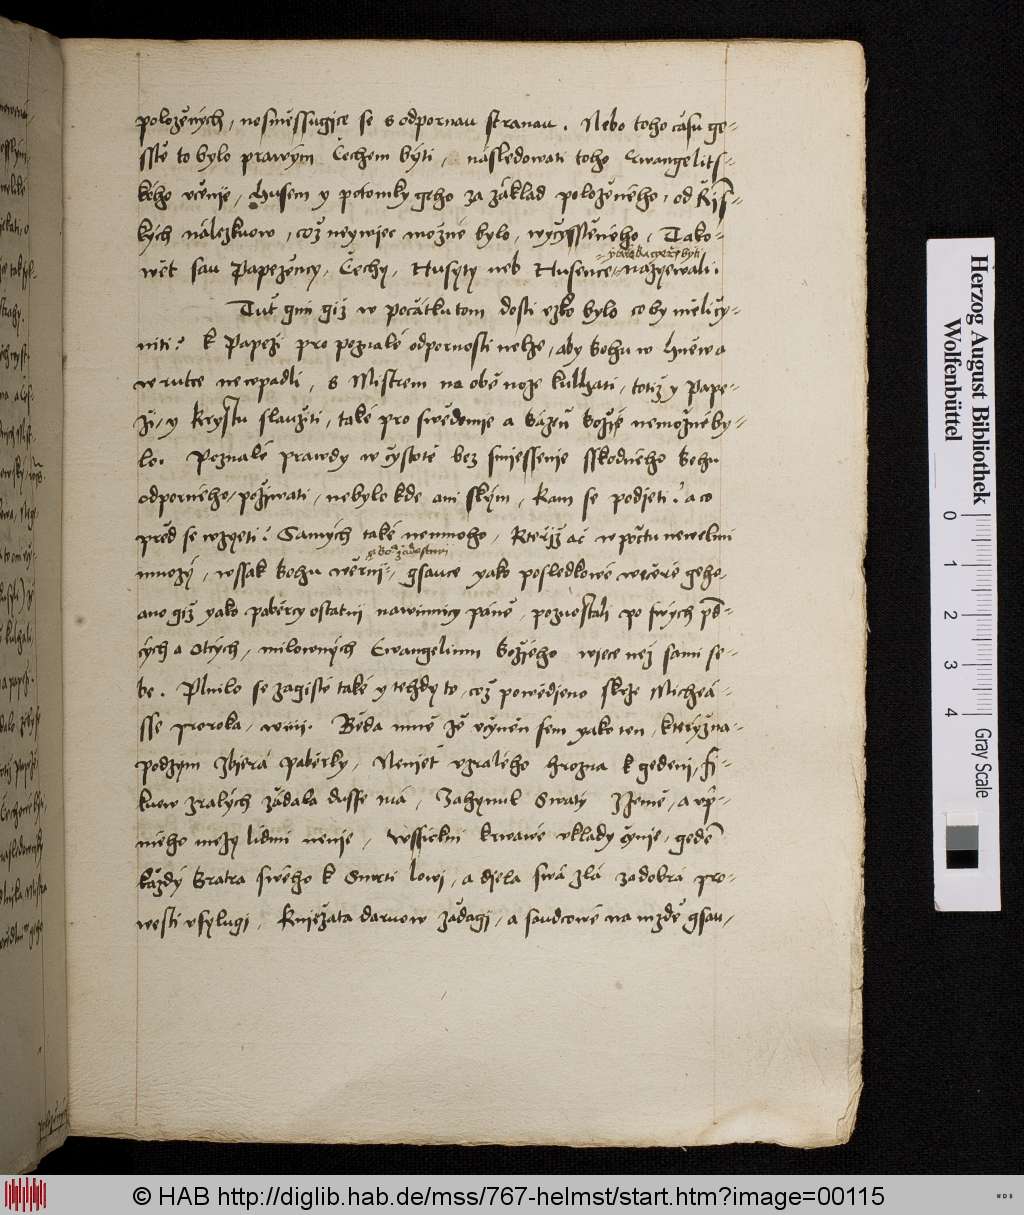 položených, nesměssugjce se s odpornau stranau. Nebo toho času ge-
sstě to bylo prawým Čechem býti, následowati toho Ewangelits-
kého včenje, Husem y potomky geho za základ položeného, od Řjms-
kých nálezkuow, což neywjec možné bylo, wyčysstěného. Tako-
wét sau Papežency, Čechy, Husyty neb Husence nazýwali.
Tuť gim giž w počátku tom dosti vzko bylo co by měli čy-
niti? K Papeži pro poznalé odpornosti nelze, aby Bohu w hněw a
w rutce newpadli, s Mistrem na obě noze kulhati, totiž y Pape-
ži, y Krystu slaužiti, také pro swědomje a bázeň Božj nemožné by-
lo. Poznalé prawdy w čystotě bez smjessenje sskodného Bohu
odporného, požjwati, nebylo kde ani s kým, Kam se podjeti? a co
před se wzyeti? Samých také nemnoho, Kteřjž ač w počtu newelmi
mnozý, wssak Bohu wěrni, gsauce yako posledkowé wečeře geho,
ano giž yako paběrcy ostatni na winnicy páně, pozuostali po swých před-
cých a Otcých, milowných Ewangelium Božjeho wjece než sami se-
be. Plnilo se zagisté také y tehdy to, což powědjeno skrze Micheá-
sse Proroka, Běda mně že včyněn sem yako ten, kterýž na-
podzym zbjerá paběrky, Nenjeť vzralého hrozna k gedenj, fi-
kuow zralých žádala dusse má, Zahynul Swatý z Země, a vpřj-
mého mezy lidmi nenie, Wssickni krwawé vklady čynje, geden
každý Bratra swého k Smrti lowj, a djela swá zlá za dobrá pro-
westi vsylugj, Knježata daruow žádagj, a saudcowé na mzdě gsau,
Herzog August Bibliothek
Wolfenbüttel
0 1 2 3 4
Gray Scale
© HAB http://diglib.hab.de/mss/767-helmst/start.htm?image=00115